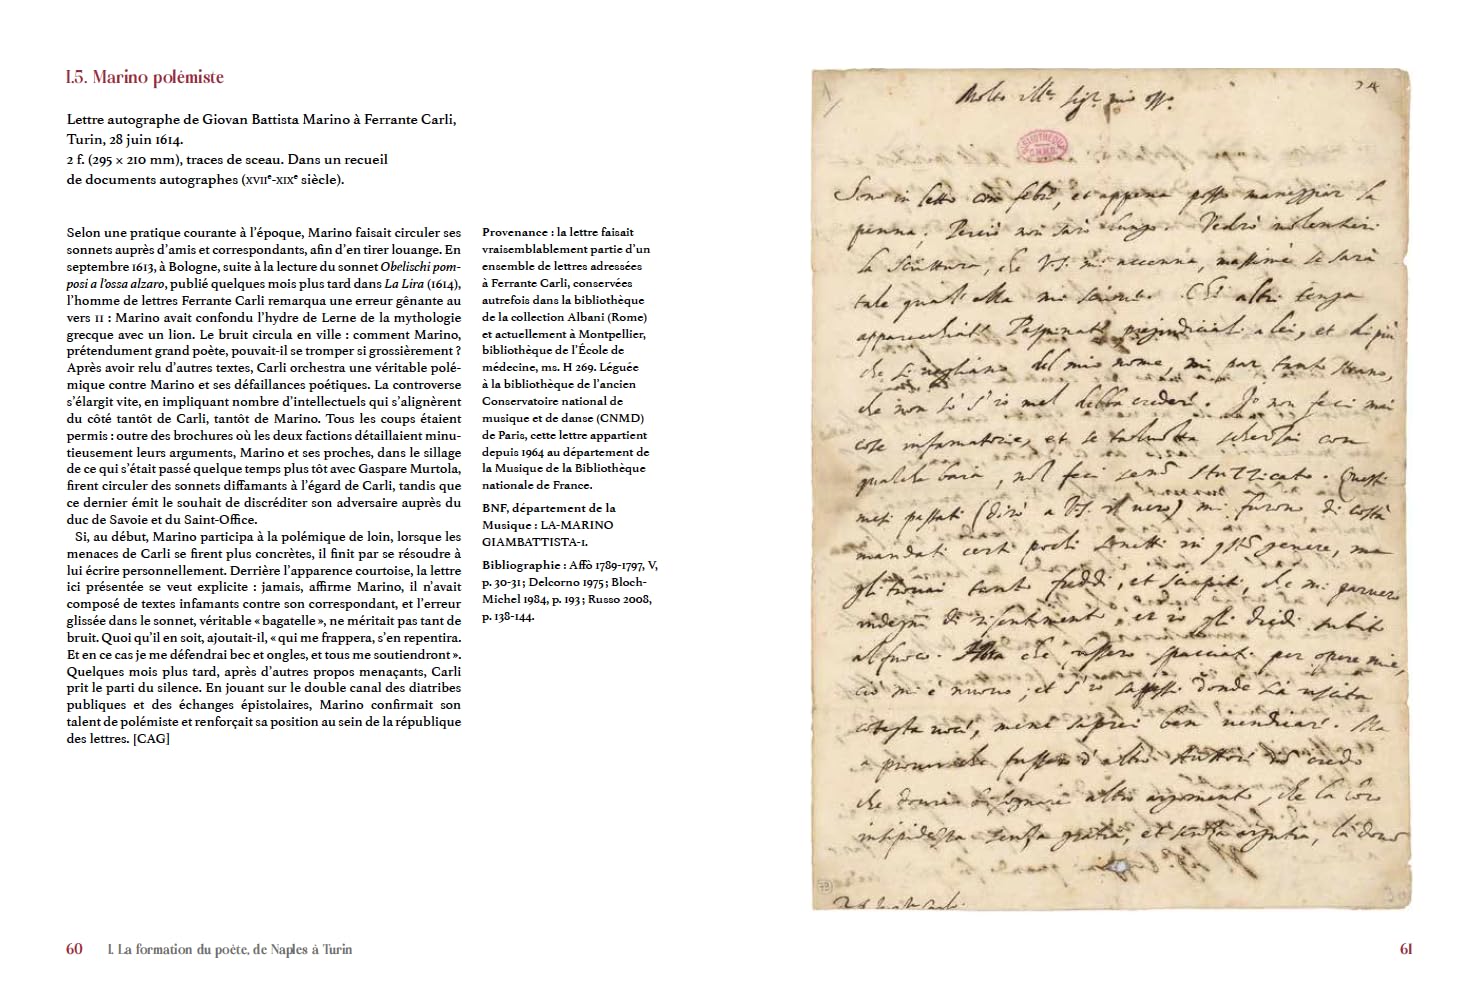 I.5. Marino polémiste
Lettre autographe de Giovan Battista Marino à Ferrante Carli,
Turin, 28 juin 1614.
2 f. (295 × 210 mm), traces de sceau. Dans un recueil
de documents autographes (XVIIe-XIXe siècle).
Selon une pratique courante à l'époque, Marino faisait circuler ses
sonnets auprès d'amis et correspondants, afin d'en tirer louange. En
septembre 1613, à Bologne, suite à la lecture du sonnet Obelischi pom-
posi a l'ossa alzaro, publié quelques mois plus tard dans La Lira (1614),
l'homme de lettres Ferrante Carli remarqua une erreur gênante au
vers 11 : Marino avait confondu l'hydre de Lerne de la mythologie
grecque avec un lion. Le bruit circula en ville : comment Marino,
prétendument grand poète, pouvait-il se tromper si grossièrement ?
Après avoir relu d'autres textes, Carli orchestra une véritable polé-
mique contre Marino et ses défaillances poétiques. La controverse
s'élargit vite, en impliquant nombre d'intellectuels qui s'alignèrent
du côté tantôt de Carli, tantôt de Marino. Tous les coups étaient
permis : outre des brochures où les deux factions détaillaient minu-
tieusement leurs arguments, Marino et ses proches, dans le sillage
de ce qui s'était passé quelque temps plus tôt avec Gaspare Murtola,
firent circuler des sonnets diffamants à l'égard de Carli, tandis que
ce dernier émit le souhait de discréditer son adversaire auprès du
duc de Savoie et du Saint-Office.
Si, au début, Marino participa à la polémique de loin, lorsque les
menaces de Carli se firent plus concrètes, il finit par se résoudre à
lui écrire personnellement. Derrière l'apparence courtoise, la lettre
ici présentée se veut explicite : jamais, affirme Marino, il n'avait
composé de textes infamants contre son correspondant, et l'erreur
glissée dans le sonnet, véritable « bagatelle », ne méritait pas tant de
bruit. Quoi qu'il en soit, ajoutait-il, « qui me frappera, s'en repentira.
Et en ce cas je me défendrai bec et ongles, et tous me soutiendront ».
Quelques mois plus tard, après d'autres propos menaçants, Carli
prit le parti du silence. En jouant sur le double canal des diatribes
publiques et des échanges épistolaires, Marino confirmait son
talent de polémiste et renforçait sa position au sein de la république
des lettres. [CAG]
Provenance : la lettre faisait
vraisemblablement partie d'un
ensemble de lettres adressées
à Ferrante Carli, conservées
autrefois dans la bibliothèque
de la collection Albani (Rome)
et actuellement à Montpellier,
bibliothèque de l'École de
médecine, ms. H 269. Léguée
à la bibliothèque de l'ancien
Conservatoire national de
musique et de danse (CNMD)
de Paris, cette lettre appartient
depuis 1964 au département de
la Musique de la Bibliothèque
nationale de France.
BNF, département de la
Musique : LA-MARINO
GIAMBATTISTA-1.
Bibliographie : Affò 1789-1797, V,
p. 30-31 ; Delcorno 1975 ; Bloch-
Michel 1984, p. 193 ; Russo 2008,
p. 138-144.
60 I. La formation du poète, de Naples à Turin
Molto ill.re Sig.r mio
BIBLIOTHÈQUE
Sono in letto con febre, et appena posso maneggiar la
penna; Perciò non sarò lungo. Vedrò volentieri
la scrittura, che V.S. mi accenna, massime se sarà
tale qual'ella mi scrive. Che altri tenga
apparecchiate Pasquinate pregiudiciali a lei, et di più
che si vagliano del mio nome, mi par tanto strano,
che non sò s'io mel debba credere. Io non feci mai
cose infamatorie, et se talvolta scherzai con
qualche baia, nol feci senon stuzzicato. Questi
mesi passati (dirò a V.S. il vero) mi furono di costà
mandati certi pochi sonetti in genere, ma
gli trovai tanto freddi, et sciapiti, che mi parvero
indegni di risentimento, et io gli diedi subito
al fuoco. che fussero spacciati per opere mie,
ciò mi è nuovo; et s'io sapessi donde sia uscita
cotesta voce, mene saprei ben vendicare. Ma
fussero d'altro Auttore credo
che altro argomento, che la loro
insipidezza senza gratia, et senza argutia, là dove
61